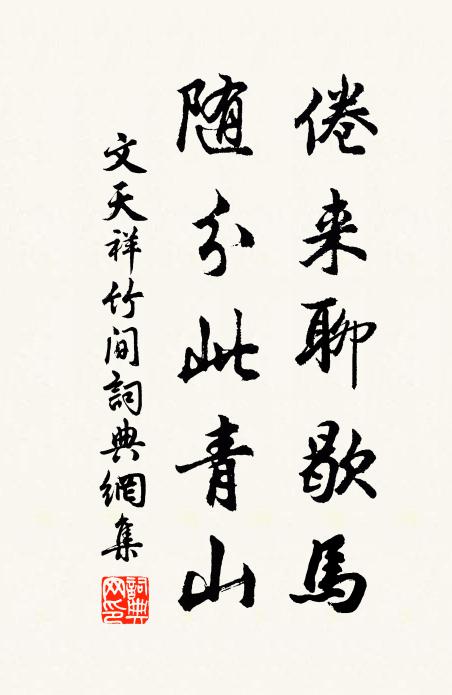 倦来聊歇馬
随分此青山
文天祥竹间詞典網集
詞典网印